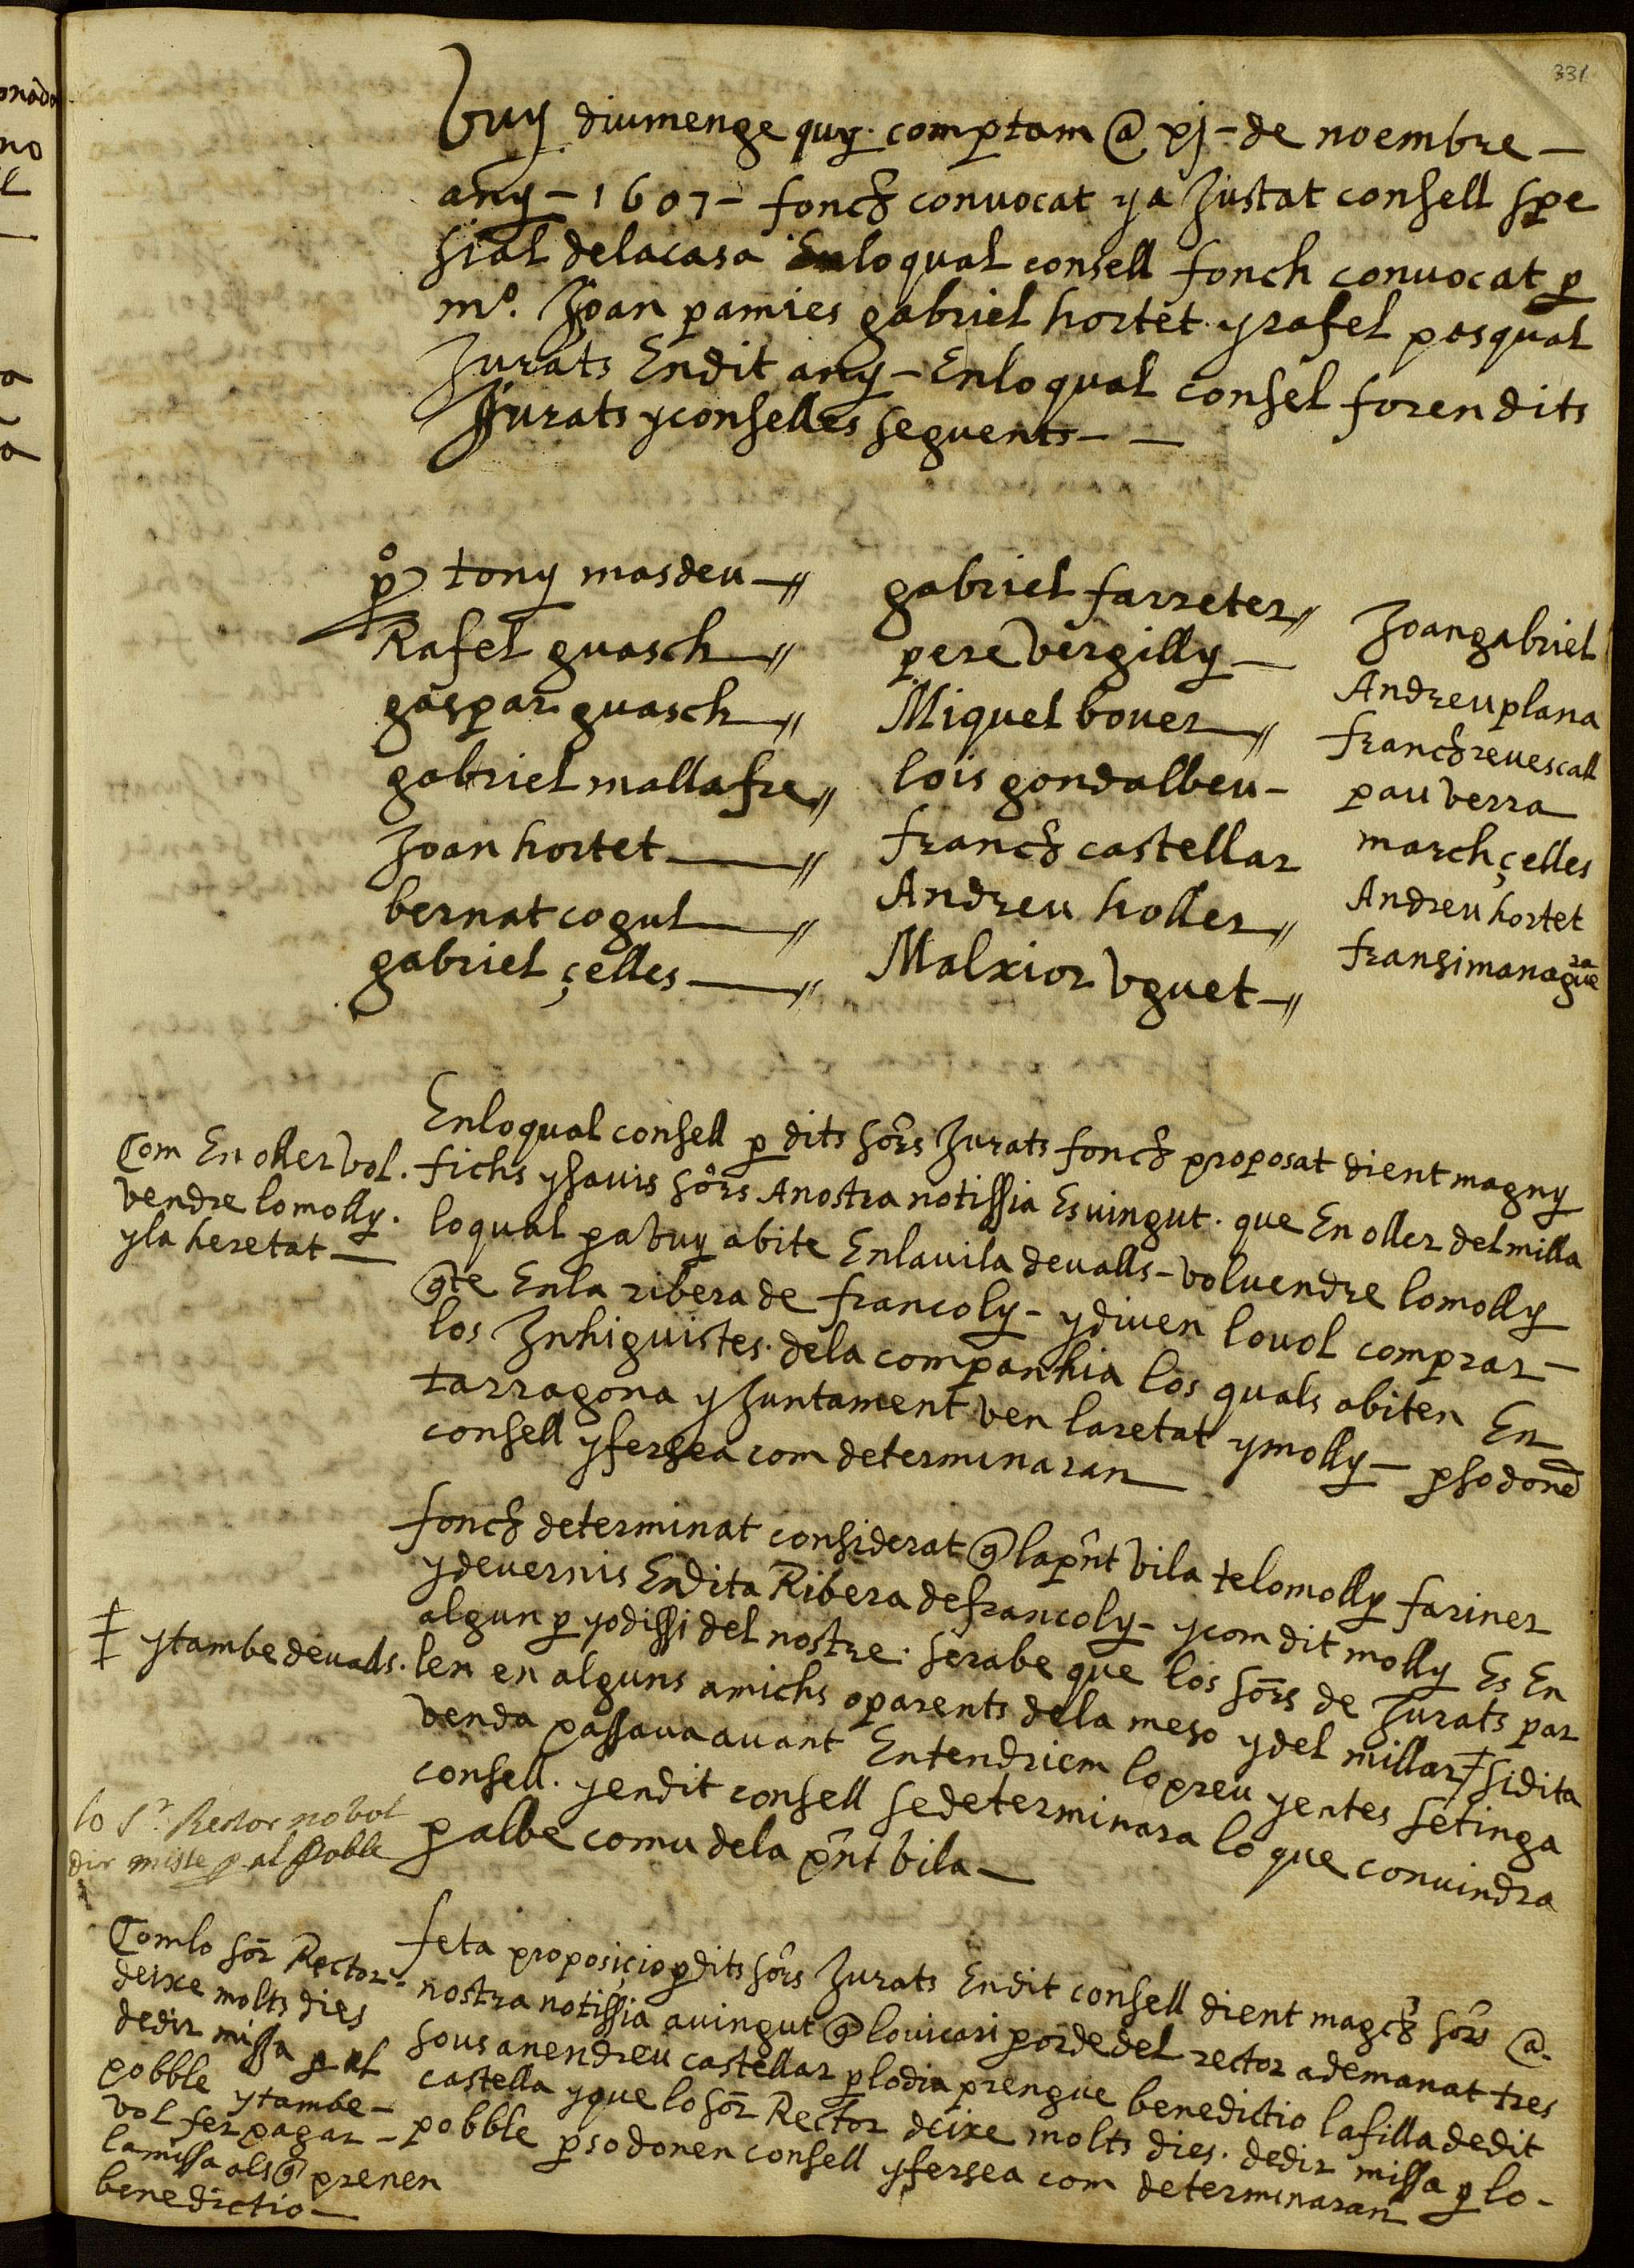 331
Vuy diumenge quy comptam @ xj - de noembre -
any - 1607 - fonch convocat y a Justat consell spe
sial de la casa En lo qual consell fonch convocat p
mº. Joan pamies gabriel hortet y rafel pasqual
Jurats En dit any - En lo qual consel foren dits
Jurats y conselles seguents - -
pº tony masdeu
Rafel guasch
gaspar guasch
gabriel mallafre
Joan hortet
bernat cogul
gabriel çelles
gabriel farreter
pere vergilly
Miquel bover
lois gondalbeu -
franch castellar
Andreu holler
Malxior Vguet
Joan gabriel
Andreu plana
franch revescall
pau verra
march çelles
Andreu hortet
fransi managuera
Com En oller vol
vendre lo molly
y la heretat
En lo qual consell p dits sors Jurats fonch proposat dient magny
fichs y savis sors A nostra notissia Es vingut que En oller del milla
lo qual p a vuy abite En la vila de valls - vol vendre lo molly
q te En la ribera de francoly - y diuen lo vol comprar -
los Inhiguistes de la companhia los quals abiten En
tarragona y Juntament ven la retat y molly - p so donen
consell y fersea com determinaran
fonch determinat considerat q la pnt vila te lo molly fariner
y de vernis En dita Ribera de francoly - y com dit molly Es En
algun p yodissi del nostre serabe que los sors de Jurats par
‡ y tambe de valls
len en alguns amichs o parents de la meso y del millar ‡ si dita
venda passava avant Entendriem lo preu y entes se tinga
consell y en dit consell se determinara lo que convindra
p al be comu de la pnt vila
lo Sr. Rector no vol
dir misse p al poble
Com lo sor Rector
deixe molts dies
de dir missa p al
pobble y tambe -
vol fer pagar -
la missa als q prenen
benedictio
feta proposiçio p dits sors Jurats En dit consell dient magch sors @
nostra notissia a vingut q lo vicari p orde del rector a demanat tres
sous a n endreu castellar p lo dia prengue benedictio la filla de dit
castella y que lo sor Rector deixe molts dies de dir missa p lo -
pobble p so donen consell y fersea com determinaran